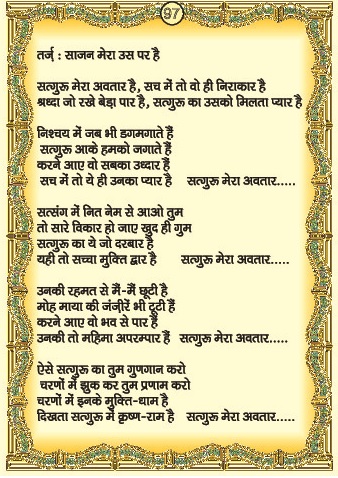 97
तर्ज़ : साजन मेरा उस पर है
सत्गुरु मेरा अवतार है, सच में तो वो ही निराकार है
श्रध्दा जो रखे बेड़ा पार है, सत्गुरु का उसको मिलता प्यार है
निश्चय में जब भी डगमगाते हैं
सत्गुरु आके हमको जगाते हैं
करने आए वो सबका उध्दार हैं
सच में तो ये ही उनका प्यार है सत्गुरु मेरा अवतार.....
सत्संग में नित नेम से आओ तुम
तो सारे विकार हो जाए खुद ही गुम
सत्गुरु का ये जो दरबार है
यही तो सच्चा मुक्ति द्वार है सत्गुरु मेरा अवतार.....
उनकी रहमत से मैं-मैं छूटी है
मोह माया की जंजीरें भी टूटी हैं
करने आए वो भव से पार हैं
उनकी तो महिमा अपरम्पार हैं सत्गुरु मेरा अवतार.....
ऐसे सत्गुरु का तुम गुणगान करो
चरणों में झुक कर तुम प्रणाम करो
चरणों में इनके मुक्ति-धाम है
दिखता सत्गुरु में कृष्ण-राम है सत्गुरु मेरा अवतार.....